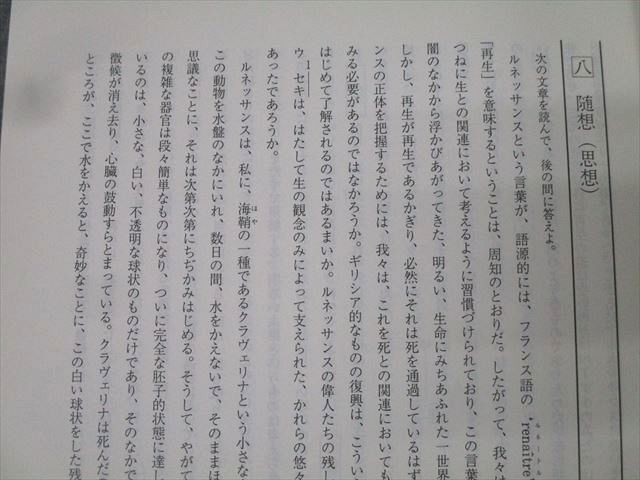 八 随想（思想）
次の文章を読んで、後の問に答えよ。
ルネッサンスという言葉が、語源的には、フランス語の“renaître
ルネートル
「再生」を意味するということは、周知のとおりだ。したがって、我々は
つねに生との関連において考えるように習慣づけられており、この言葉
闇のなかから浮かびあがってきた、明るい、生命にみちあふれた一世界
しかし、再生が再生であるかぎり、必然にそれは死を通過しているはず
ンスの正体を把握するためには、我々は、これを死との関連においても
みる必要があるのではなかろうか。ギリシア的なものの復興は、こうい
はじめて了解されるのではあるまいか。ルネッサンスの偉人たちの残し
1
ウ、セキは、はたして生の観念のみによって支えられた、かれらの悠々
あったであろうか。
ルネッサンスは、私に、海鞘の一種であるクラヴェリナという小さな
ほや
この動物を水盤のなかにいれ、数日の間、水をかえないで、そのままほ
思議なことに、それは次第次第にちぢかみはじめる。そうして、やがて
の複雑な器官は段々簡単なものになり、ついに完全な胚子的状態に達し
いるのは、小さな、白い、不透明な球状のものだけであり、そのなかで
徴候が消え去り、心臓の鼓動すらとまっている。クラヴェリナは死んだ
ところが、ここで水をかえると、奇妙なことに、この白い球状をした残